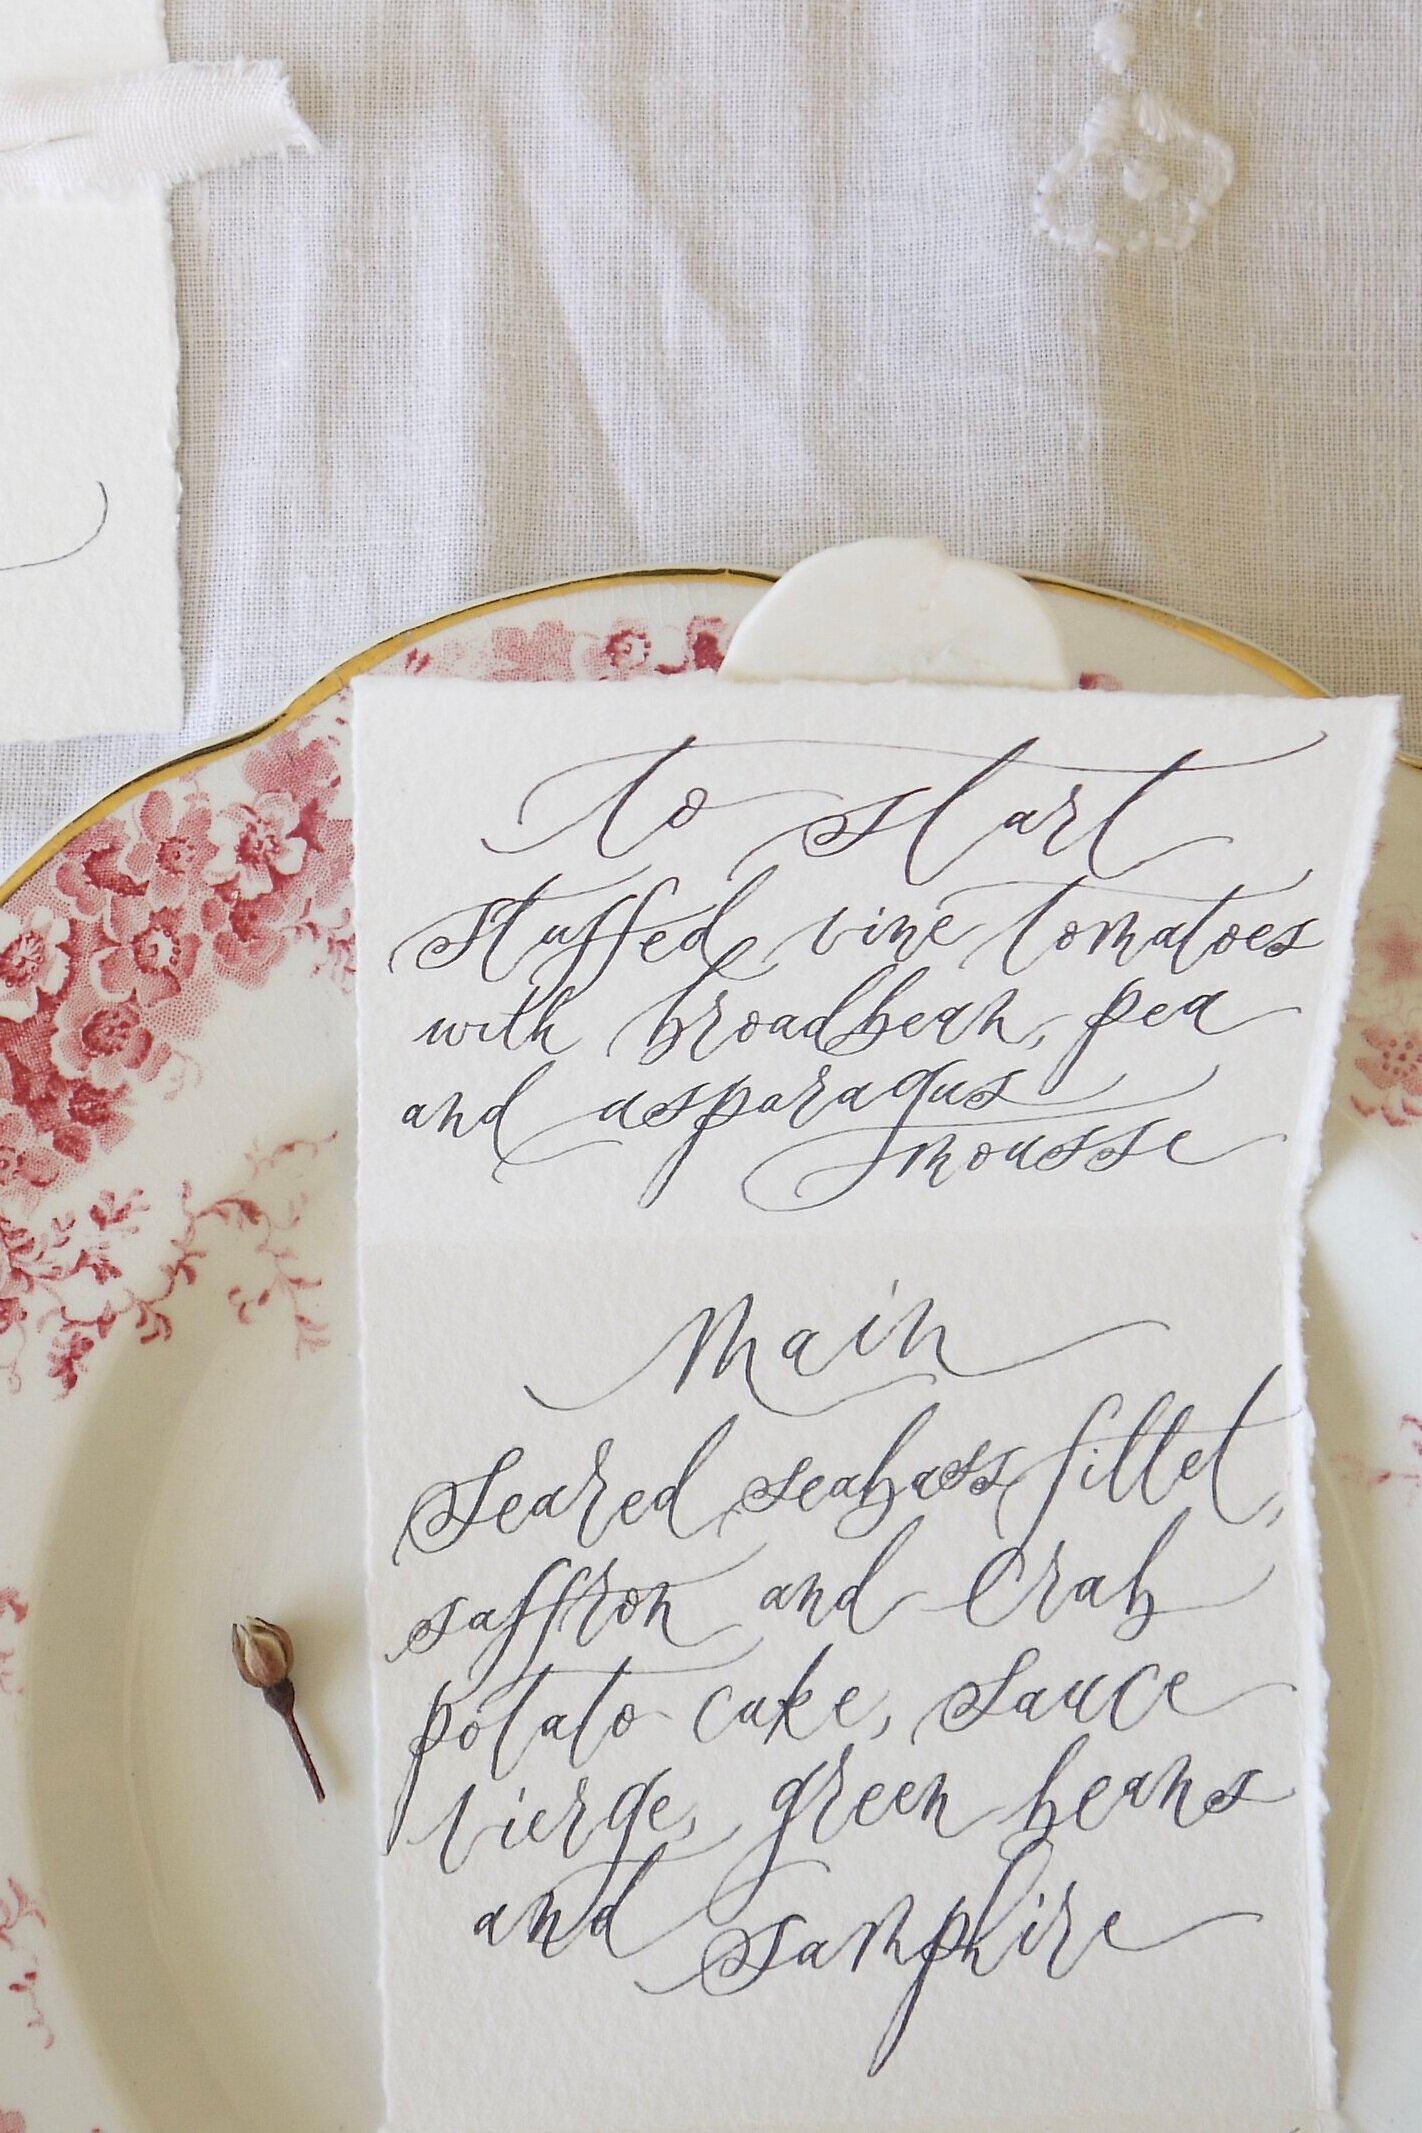 to start
stuffed vine tomatoes
with broadbean, pea
and asparagus
mousse
Main
Seared seabass fillet,
saffron and Crab
potato cake, Sauce
vierge, green beans
and samphire